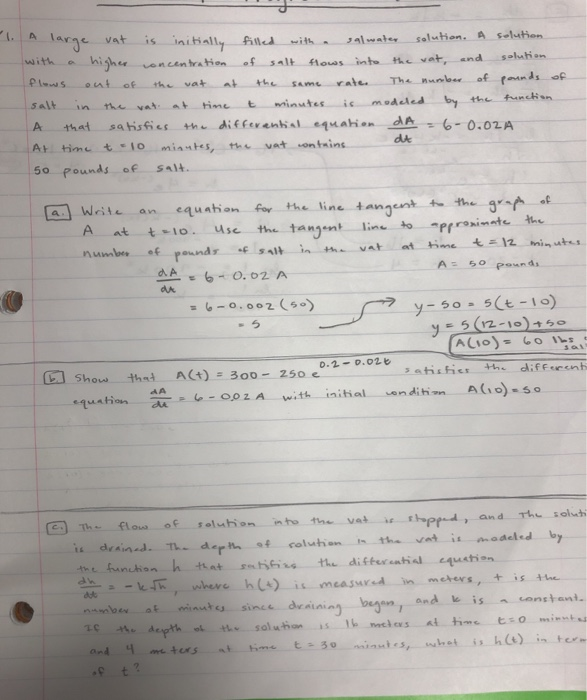 1. A large vat is initially filled with a salwater solution. A solution
with a higher concentration of salt flows into the vat, and solution
flows out of the vat at the same rate. The number of pounds of
salt in the vat at time t minutes is modeled by the function
A that satisfies the differential equation dA/dt = 6-0.02A
At time t=10 minutes, the vat contains
50 pounds of salt.
a. Write an equation for the line tangent to the graph of
A at t=10. Use the tangent line to approximate the
number of pounds of salt in the vat at time t=12 minutes
dA/dt = 6-0.02A A = 50 pounds
= 6-0.002(50) y-50 = 5(t-10)
= 5 y = 5(12-10)+50
A(10) = 60 lbs
b. Show that A(t) = 300 - 250e^0.2-0.02t satisfies the differenti
equation dA/dt = 6-0.02A with initial condition A(10)=50
c. The flow of solution into the vat is stopped, and The soluti
is drained. The depth of solution in the vat is modeled by
the function h that satifies the differential equation
dh/dt = -k√h, where h(t) is measured in meters, t is the
number of minutes since draining began, and k is a constant.
If the depth of the solution is 16 meters at time t=0 minutes
and 4 meters at time t=30 minutes, what is h(t) in term
of t?